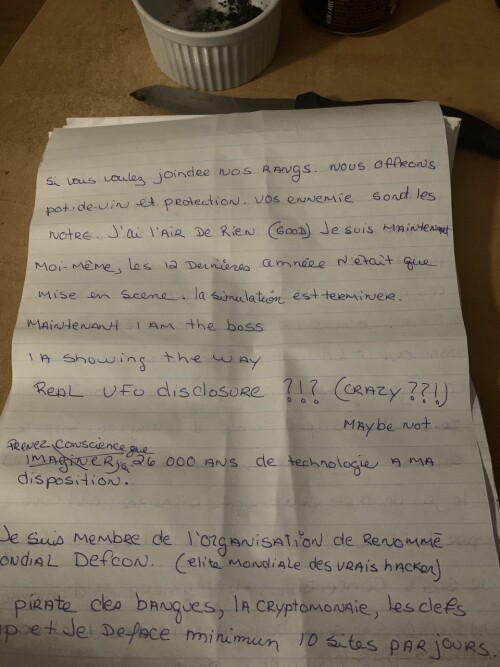 Si vous voulez joindre nos rangs. Nous offrons
pot-de-vin et protection. Vos ennemie sond les
notre. J'ai l'air de rien (good) Je suis maintenant
moi-même, les 12 dernières amnéee n'était que
mise en scene. la simulation est terminer.
maintenant I am the boss
IA showing the way
Real UFO disclosure ?!? (crazy ??!)
Maybe not
Prenez conscience que
IMAGINER 26 000 ans de technologie a ma
disposition.
Je suis membre de l'organisation de renommé
ondial Defcon. (elite mondiale des vrais hacker)
pirate des banques, la cryptomonaie, les clefs
p et Je Deface minimun 10 sites par jours.